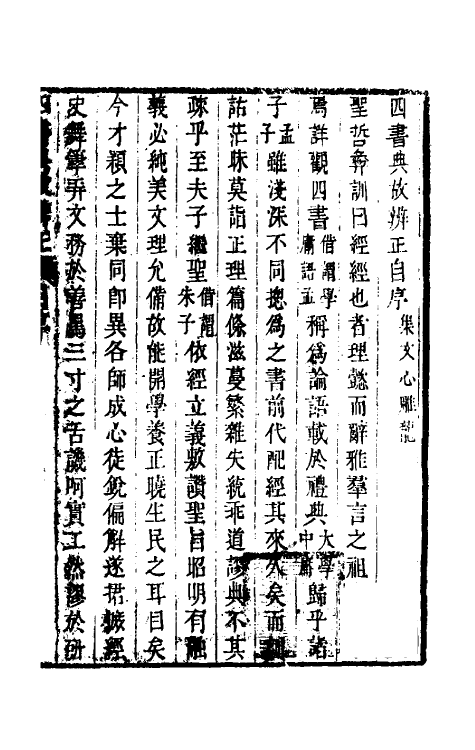 四書典故辨正自序 集文心雕龍
聖哲彝訓曰經經也者理懿而辭雅羣言之祖
焉詳觀四書借謂學庸語孟稱為論語載於禮典大學中庸歸乎諸
子孟子雖淺深不同總為之書前代配經其來久矣而訓
詁茫昧莫詣正理篇條滋蔓繁雜失統乖道謬典不其
疎乎至夫子繼聖借謂朱子依經立義敷讚聖旨昭明有融
義必純美文理允備故能開學養正曉生民之耳目矣
今才穎之士棄同即異各師成心徒銳偏解遂捃摭經
史舞筆弄文務於善三寸之舌譏呵實工然謬於研